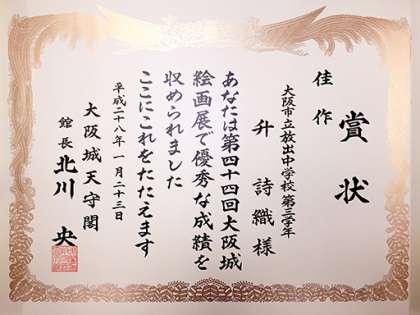 賞状
佳作
大阪市立放出中学校 第三学年
升 詩織 様
あなたは第四十四回大阪城
絵画展で優秀な成績を
収められました
ここにこれをたたえます
平成二十八年 一月二十三日
大阪城天守閣
館長 北川 央